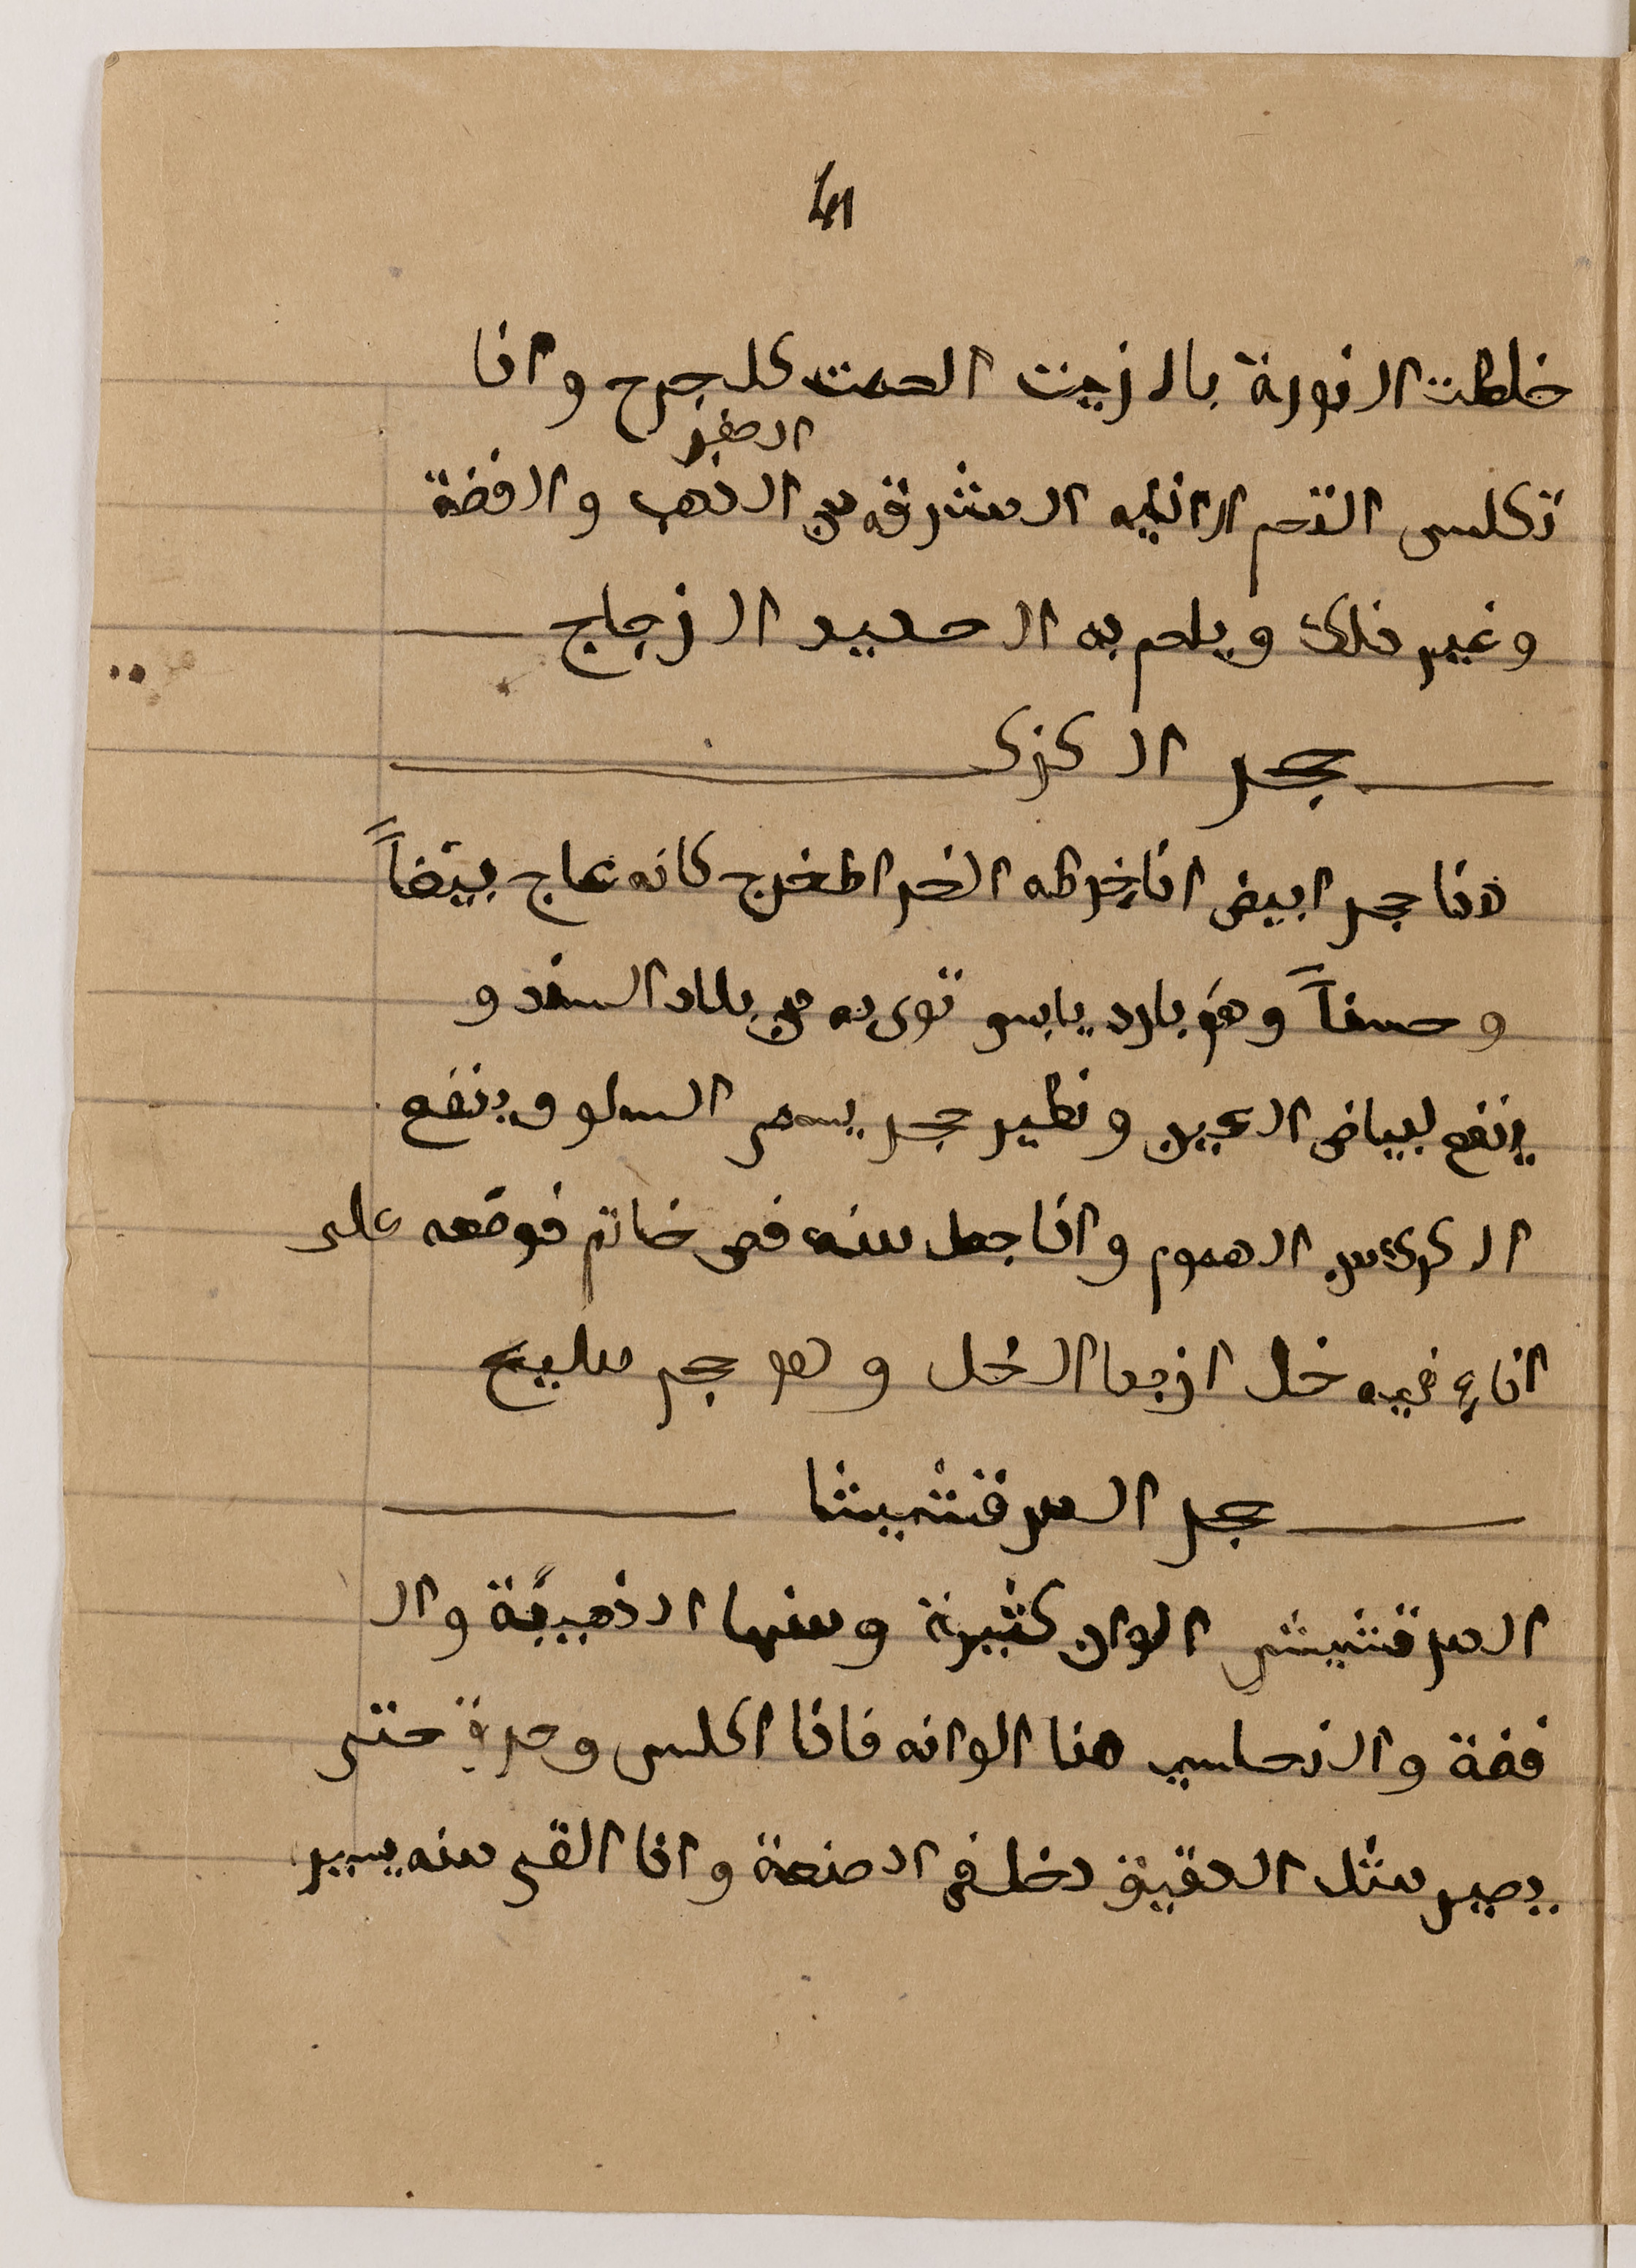 41
خلطت النورة بالزيت الحمت للجرح واذا
الصفر
تكلس التحم الانيه المشرفه من الذهب والفضة
وغير ذلك ويلحم به الحديد الزجاج
حجر الكزك
هذا حجر ابيض اذا خرطه الخراط خرج كانه عاج بيضاً
وحسناً وهو بارد يابس توى به من بلاد السند و
ينفع لبياض العين ونظير حجر يسمى السلو وينفع
الكرك من الهموم واذا جعل منه فص خاتم فوضعه على
اناء فيه خل ازبد الخل وهو حجر مليح
حجر المرقشيشا
المرقشيش الوان كثيرة ومنها الذهبية وال
فضة والنحاسيه هذا الوانه فاذا اكلس وحرق حتى
يصير مثل الدقيق دخل في الصنعة واذا القى منه يسير